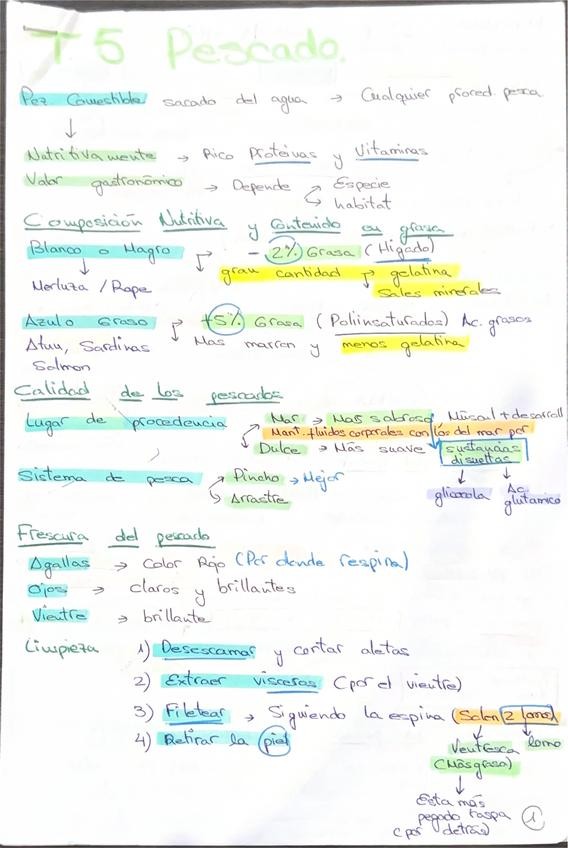 T 5 Pescado.
Pez Comestible sacado del agua → Cualquier proced. pesca
↓
Nutritivamente → Rico Proteinas y Vitaminas
Valor gastronómico → Depende ↗ Especie
↘ habitat
Composición Nutritiva y Contenido en grasa
Blanco o Magro → - 2% Grasa (Higado)
↓ gran cantidad → gelatina
Merluza / Rape Sales minerales
Azul o Graso → +5% Grasa (Poliinsaturados) Ac. grasos
Atun, Sardinas Mas marron y menos gelatina
Salmon
Calidad de los pescados
Lugar de procedencia → Mar → Mas sabroso Múscul + desarroll
Mant. fluidos corporales con los del mar por
Dulce → Más suave sustancias
disueltas
Sistema de pesca → Pincho → Mejor
→ Arrastre glicocola Ac. glutamico
Frescura del pescado
Agallas → Color Rojo (Por donde respira)
Ojos → claros y brillantes
Vientre → brillante
Limpieza 1) Desescamar y cortar aletas
2) Extraer visceras (por el vientre)
3) Filetear → Siguiendo la espina (Salen 2 lomos)
4) Retirar la piel
Ventresca lomo
(Más grasa)
↓
Esta más
pegado raspa
(por detrás) 1